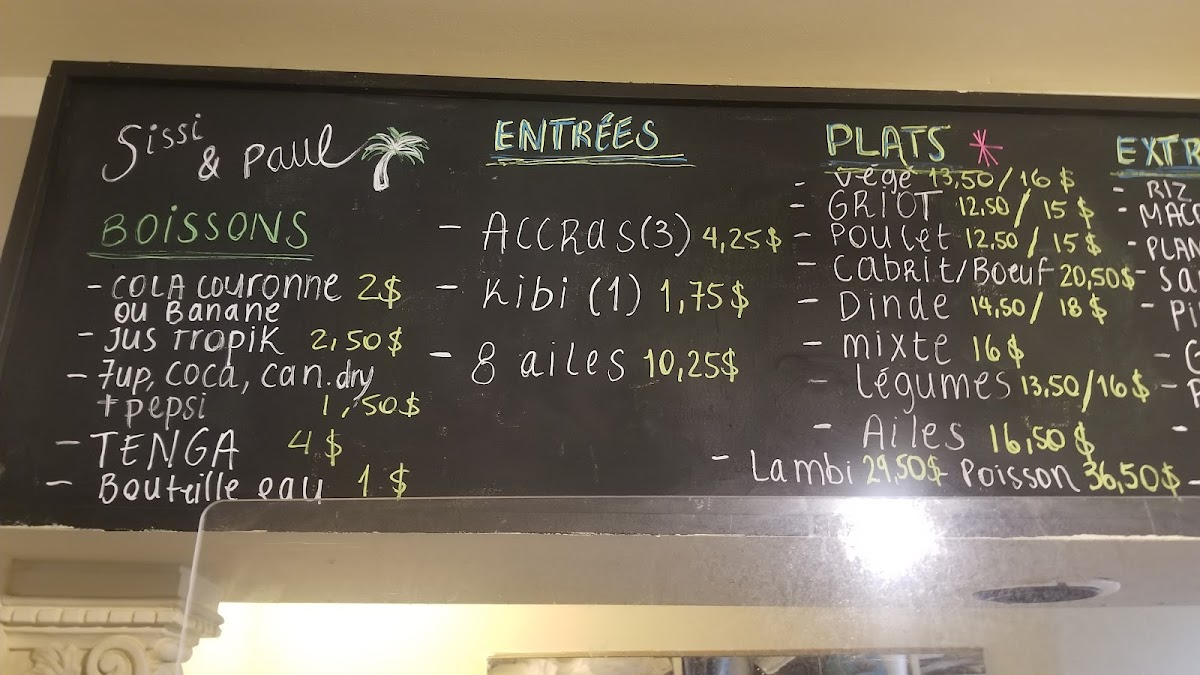 Sissi
& Paul
BOISSONS
- COLA couronne 2$
ou Banane
- Jus Tropik 2,50$
- 7up, coca, can.dry
+ pepsi 1,50$
- TENGA 4$
- Bouteille eau 1$
ENTRÉES
- ACCRAS(3) 4,25$
- Kibi (1) 1,75$
- 8 ailes 10,25$
PLATS *
- végé 13,50/16$
- GRIOT 12,50/15$
- Poulet 12,50/15$
- Cabrit/Boeuf 20,50$
- Dinde 14,50/18$
- mixte 16$
- Légumes 13,50/16$
- Ailes 16,50$
- Lambi 29,50$ Poisson 36,50$
EXTR
- RIZ
- MACC
- PLAN
- Sa
- Pi